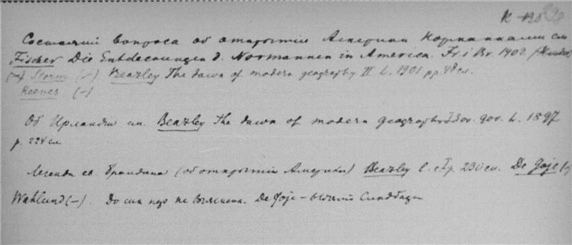 К
Состояний вопроса об открытии Америки Норманнами см
Fischer Die Entdeckungen d. Normannen in America. Fr i Br. 1902
(–) Storm (–) Beazley The dawn of modern geography II L. 1901 pp. сл.
Reeves (–)
Об Ирландии см. Beazley The dawn of modern geography L. 1897
p. сл
Легенда св. Брандана (об открытии Америки) Beazley l. c. I p. 230 сл. De Goje
Wahlund (–). До сих пор не выяснена. De Goje – Синдбада